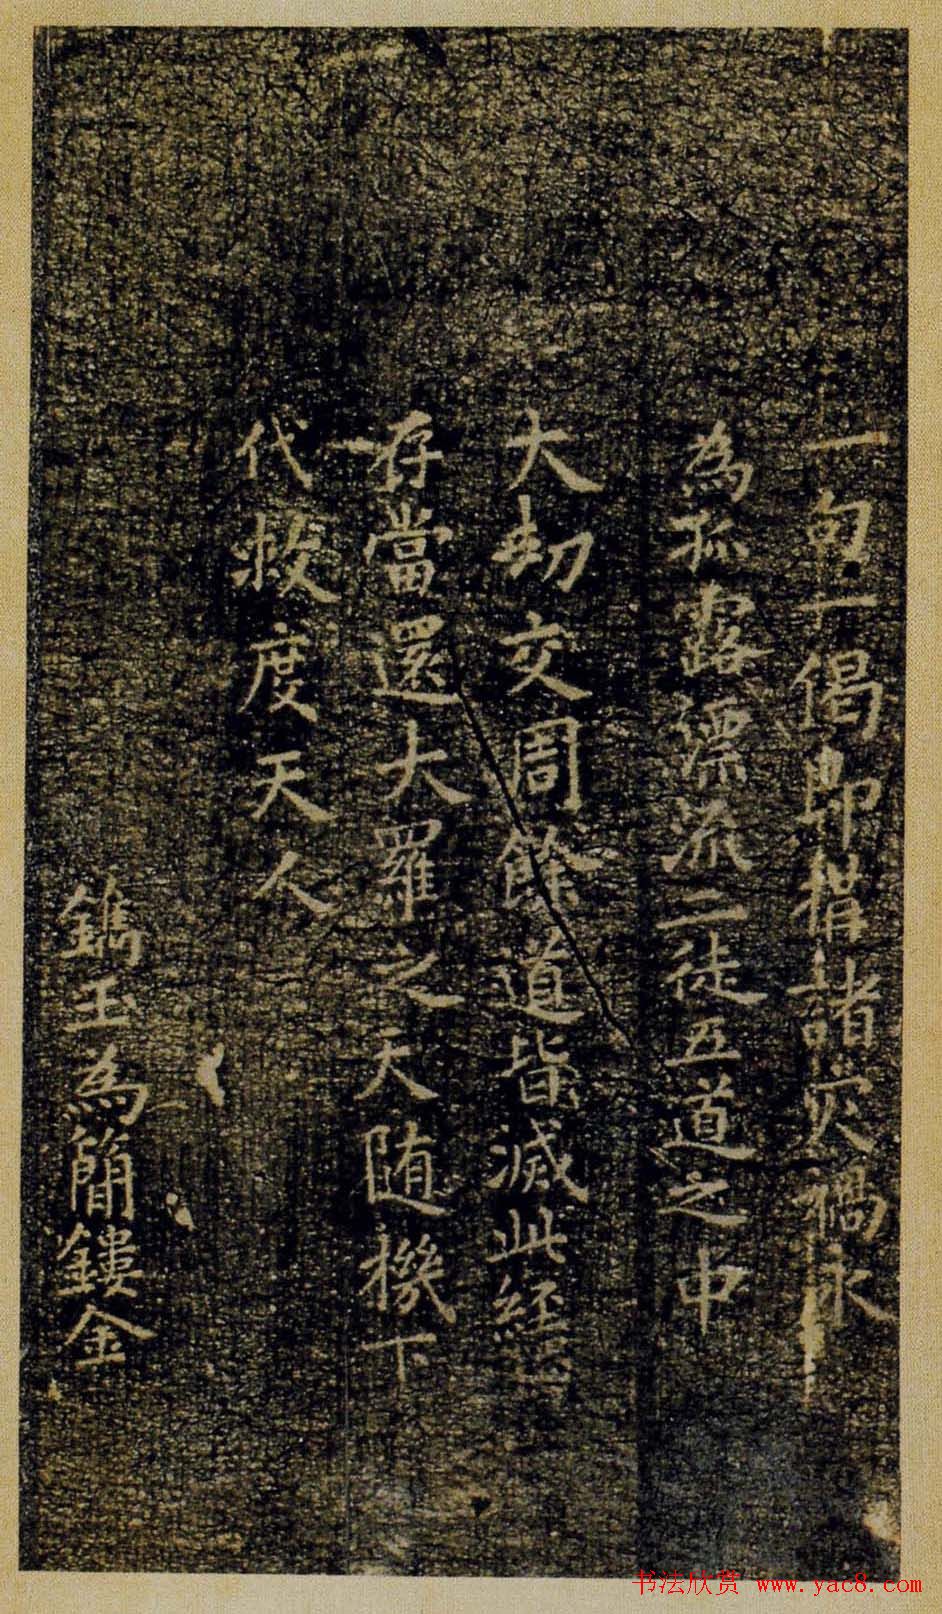 一句一偈即捐諸灾禍永
為孤露漂流二徒五道之中
大劫交周餘道皆滅此經
存當還大羅之天随機下
代救度天人
鐫玉為簡鏤金
书法欣赏 www.yac8.com